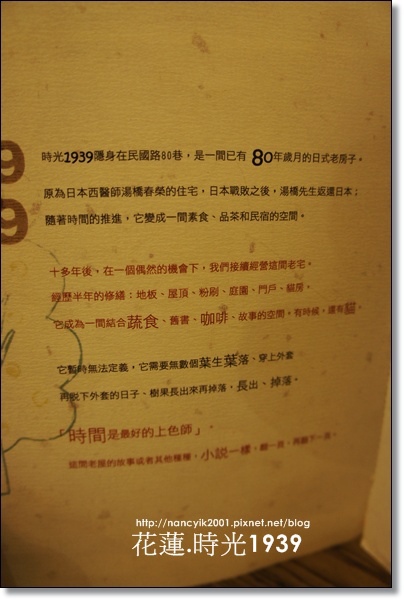 9
9
時光1939隱身在民國路80巷，是一間已有 80年歲月的日式老房子。
原為日本西醫師湯橋春榮的住宅，日本戰敗之後，湯橋先生返還日本；
隨著時間的推進，它變成一間素食、品茶和民宿的空間。
十多年後，在一個偶然的機會下，我們接續經營這間老宅。
經歷半年的修繕：地板、屋頂、粉刷、庭園、門戶、貓房。
它成為一間結合蔬食、舊書、咖啡、故事的空間。有時候，還有貓。
它暫時無法定義，它需要無數個葉生葉落、穿上外套
再脫下外套的日子、樹果長出來再掉落，長出、掉落。
「時間是最好的上色師」。
這間老屋的故事或者其他種種，小說一樣，翻一頁、再翻下一頁。
http://nancyik2001.pixnet.net/blog
花蓮.時光1939